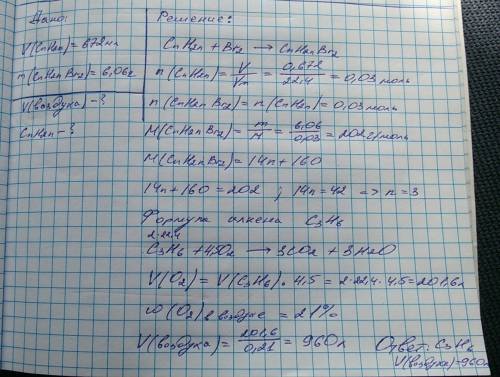 Дано:
V(CnH2n)=672мл
m(CnH2nBr2)=6,06г
V(воздуха)-?
CnH2n-?
Решение:
CnH2n + Br2 → CnH2nBr2
n(CnH2n)= V/Vm = 0,672/22,4 = 0,03 моль
n(CnH2nBr2)=n(CnH2n)=0,03моль
M(CnH2nBr2)= m/n = 6,06/0,03 = 202г/моль
M(CnH2nBr2)=14n+160
14n+160=202 ; 14n=42 => n=3
Формула алкена C3H6
2·22,4
C3H6 +4,5O2 → 3CO2 + 3H2O
V(O2)=V(C3H6)·4,5=2·22,4·4,5=201,6л
ω(O2)в воздухе = 21%
V(воздуха)= 201,6/0,21 = 960л
Ответ: C3H6
V(воздуха)=960л